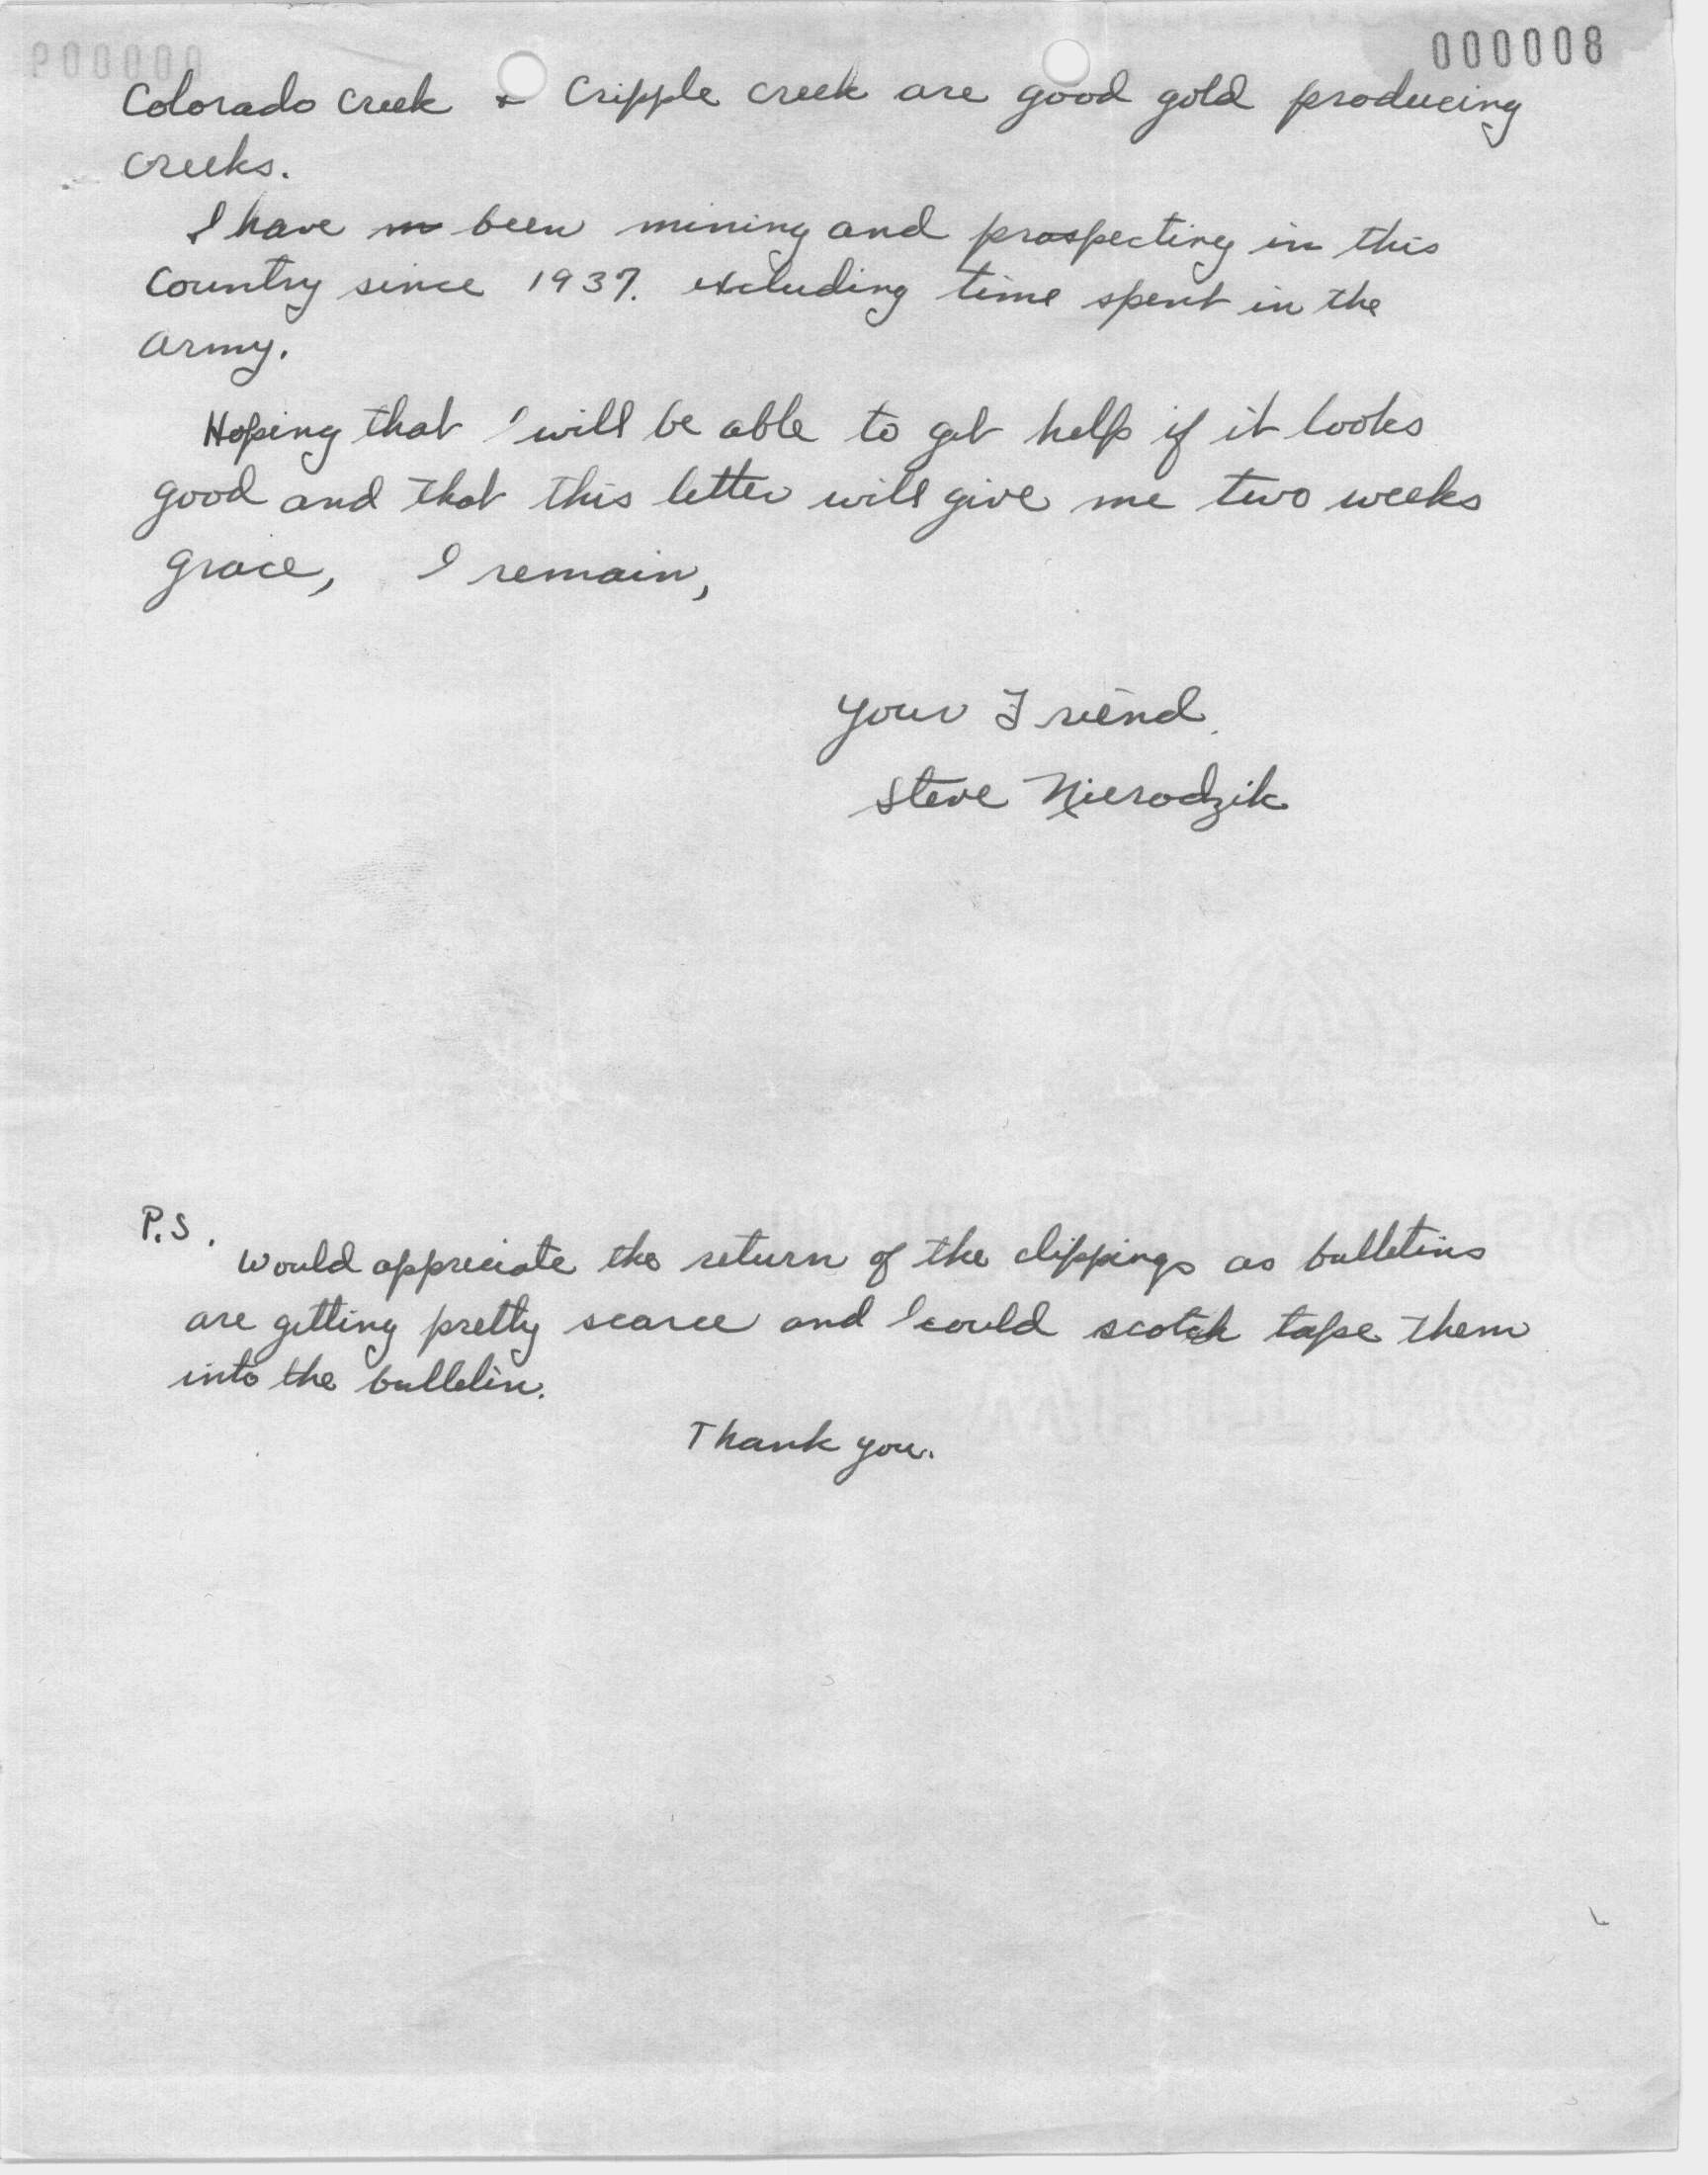 000008
Colorado Creek & Cripple creek are good gold producing
creeks.
I have m been mining and prospecting in this
Country since 1937. excluding time spent in the
army.
Hoping that I will be able to get help if it looks
good and that this letter will give me two weeks
grace, I remain,
Your Friend.
Steve Nierodzik
P.S.
Would appreciate the return of the clippings as bulletins
are getting pretty scarce and I could scotch tape them
into the bulletin.
Thank you.